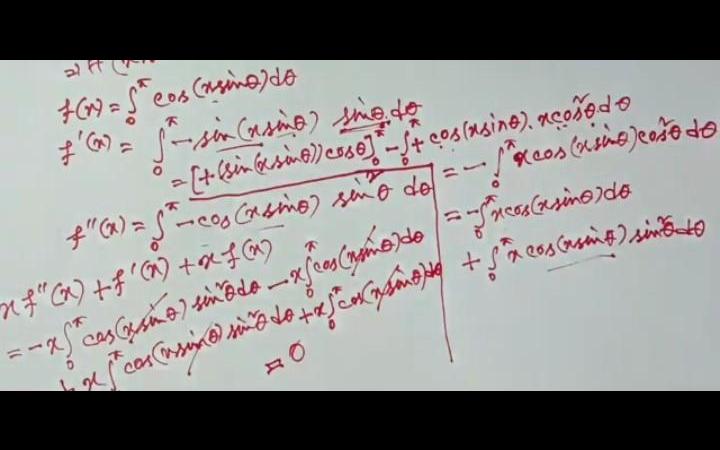 f(x) = ∫₀^π cos(x sinθ)dθ
f'(x) = ∫₀^π -sin(x sinθ) sinθ.dθ
= [+(sin(x sinθ))cosθ]₀^π - ∫₀^π + cos(x sinθ). x cos²θ.dθ
= - ∫₀^π x cos(x sinθ) cos²θ dθ
= - ∫₀^π x cos(x sinθ)dθ
+ ∫₀^π x cos(x sinθ) sin²θ dθ
f''(x) = ∫₀^π -cos(x sinθ) sin²θ dθ
x f''(x) + f'(x) + x f(x)
= -x ∫₀^π cos(x sinθ) sin²θ dθ - x ∫₀^π cos(x sinθ)dθ
+ x ∫₀^π cos(x sinθ) sin²θ dθ + x ∫₀^π cos(x sinθ)dθ
= 0